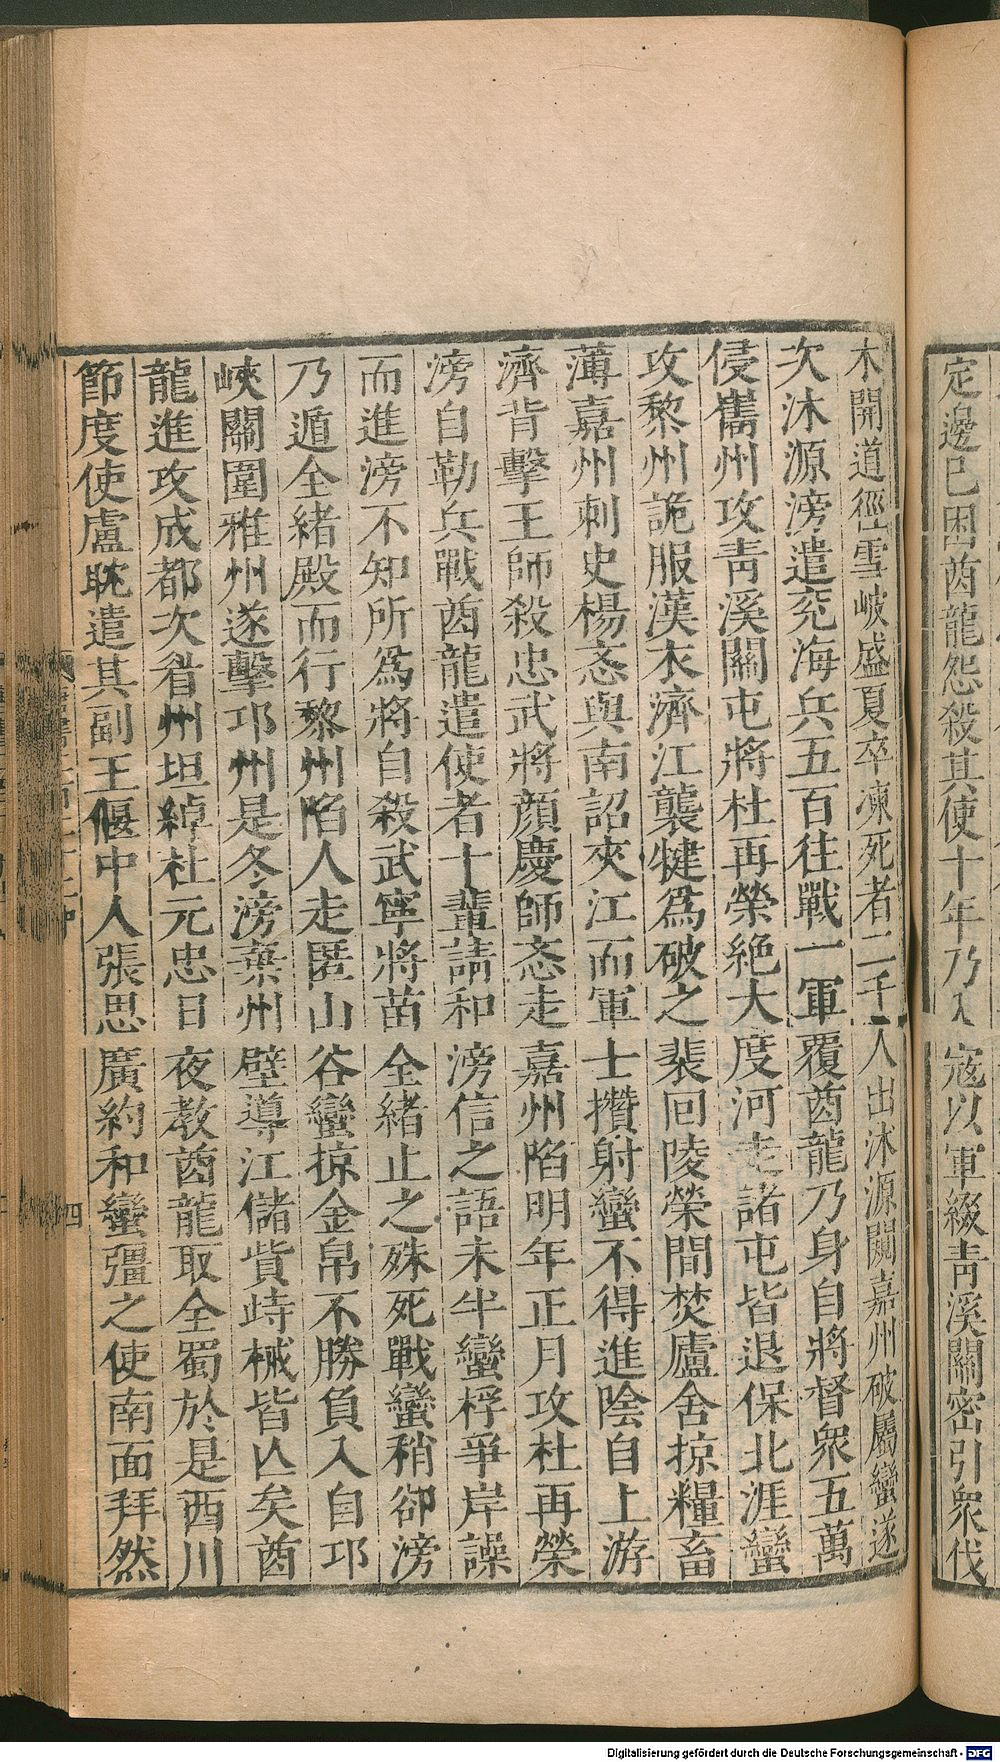 定邊已因酋龍怨殺其使十年乃入寇以軍綴青溪關密引衆伐
木開道徑雪岐盛夏卒凍死者二千人出沐源闚嘉州破屬蠻遂
次沐源滂遣兖海兵五百往戰一軍覆酋龍乃身自將督衆五萬
侵巂州攻青溪關屯將杜再榮絶大度河走諸屯皆退保北涯蠻
攻黎州詭服漢衣濟江襲犍爲破之裴回陵榮間焚廬舍掠糧畜
薄嘉州刺史楊忞與南詔夾江而軍士攢射蠻不得進陰自上游
濟背擊王師殺忠武將顏慶師忞走嘉州陷明年正月攻杜再榮
滂自勒兵戰酋龍遣使者十輩請和滂信之語未半蠻桴爭岸譟
而進滂不知所爲將自殺武寧將苗全緒止之殊死戰蠻稍卻滂
乃遁全緒殿而行黎州陷人走匿山谷蠻掠金帛不勝負入自邛
崍關圍雅州遂擊邛州是冬滂棄州壁導江儲貲峙械皆亡矣酋
龍進攻成都次眉州坦綽杜元忠日夜教酋龍取全蜀於是西川
節度使盧耽遣其副王偃中人張思廣約和蠻彊之使南面拜然
四
Digitalisierung gefördert durch die Deutsche Forschungsgemeinschaft - DFG